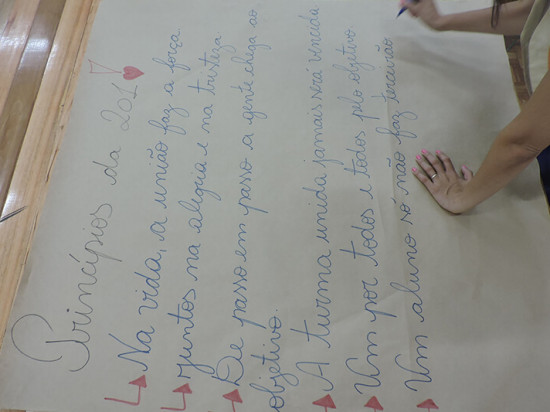 Princípios da 201
Na vida, a união faz a força
juntos na alegria e na tristeza
De passo em passo a gente chega ao
objetivo.
A turma unida jamais será vencida
Um por todos e todos pelo objetivo.
Um aluno só não faz terceirão